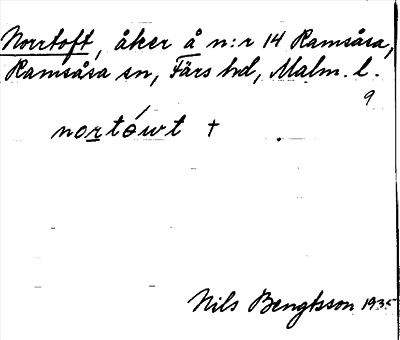 Norrtoft, åker å n:r 14 Ramsåsa,
Ramsåsa sn, Färs hd, Malm. l.
9
nortówt +
Nils Bengtsson 1935